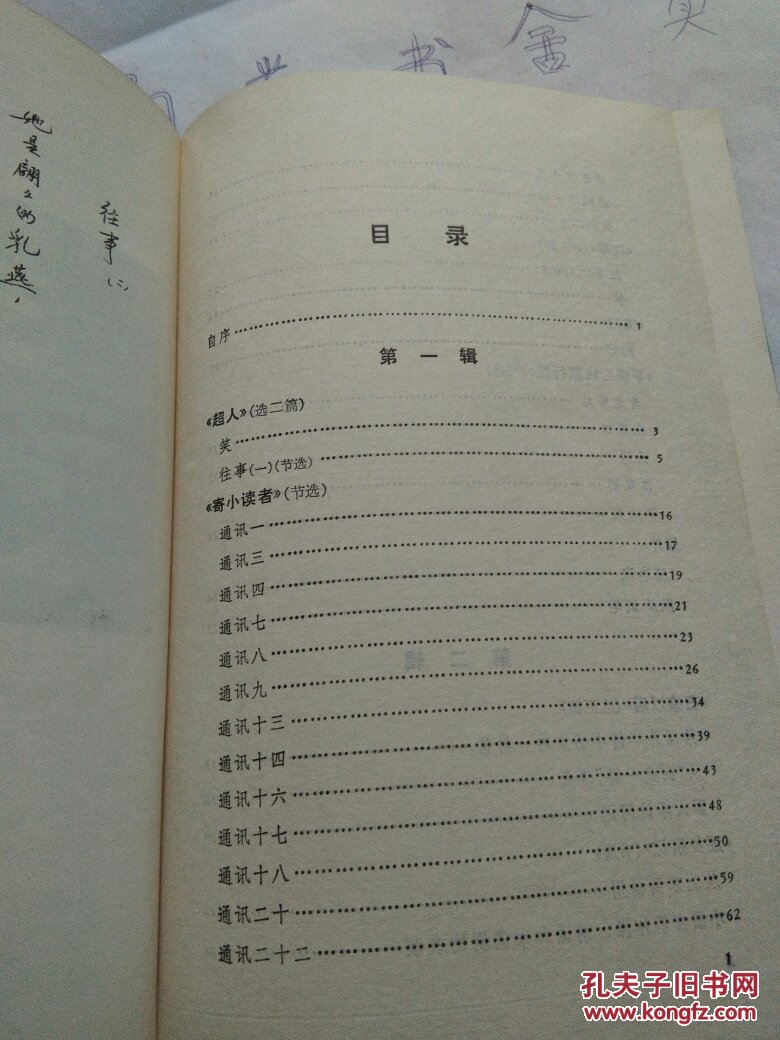 书舍
往事(二)
她是翩々的乳燕，
目 录
自序……………………1
第一辑
《超人》(选二篇)
笑……………………3
往事(一)(节选)……………………5
《寄小读者》(节选)
通讯一……………………16
通讯三……………………17
通讯四……………………19
通讯七……………………21
通讯八……………………23
通讯九……………………26
通讯十三……………………34
通讯十四……………………39
通讯十六……………………43
通讯十七……………………48
通讯十八……………………50
通讯二十……………………59
通讯二十二……………………62
1
孔夫子旧书网
www.kongfz.com